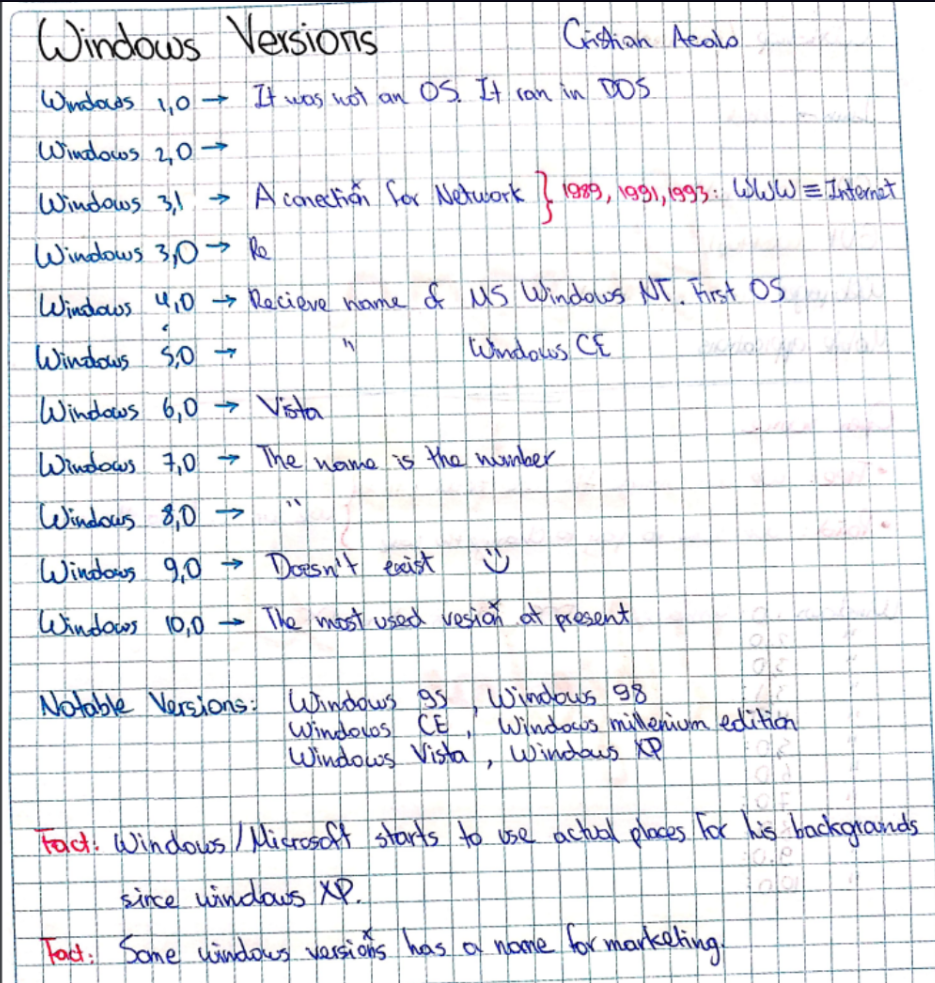 Windows Versions Cristian Acalo
Windows 1,0 → It was not an OS. It ran in DOS
Windows 2,0 →
Windows 3,1 → A conection for Network } 1989, 1991, 1993: WWW ≡ Internet
Windows 3,0 → Re
Windows 4,0 → Recieve name of MS Windows NT. First OS
Windows 5,0 → " Windows CE
Windows 6,0 → Vista
Windows 7,0 → The name is the number
Windows 8,0 → "
Windows 9,0 → Doesn't exist
Windows 10,0 → The most used vesion at present
Notable Versions: Windows 95, Windows 98
Windows CE, Windows millenium edition
Windows Vista, Windows XP
Fact: Windows/Microsoft starts to use actual places for his backgrands
since windows XP.
Fact: Some windows versions has a name for marketing.